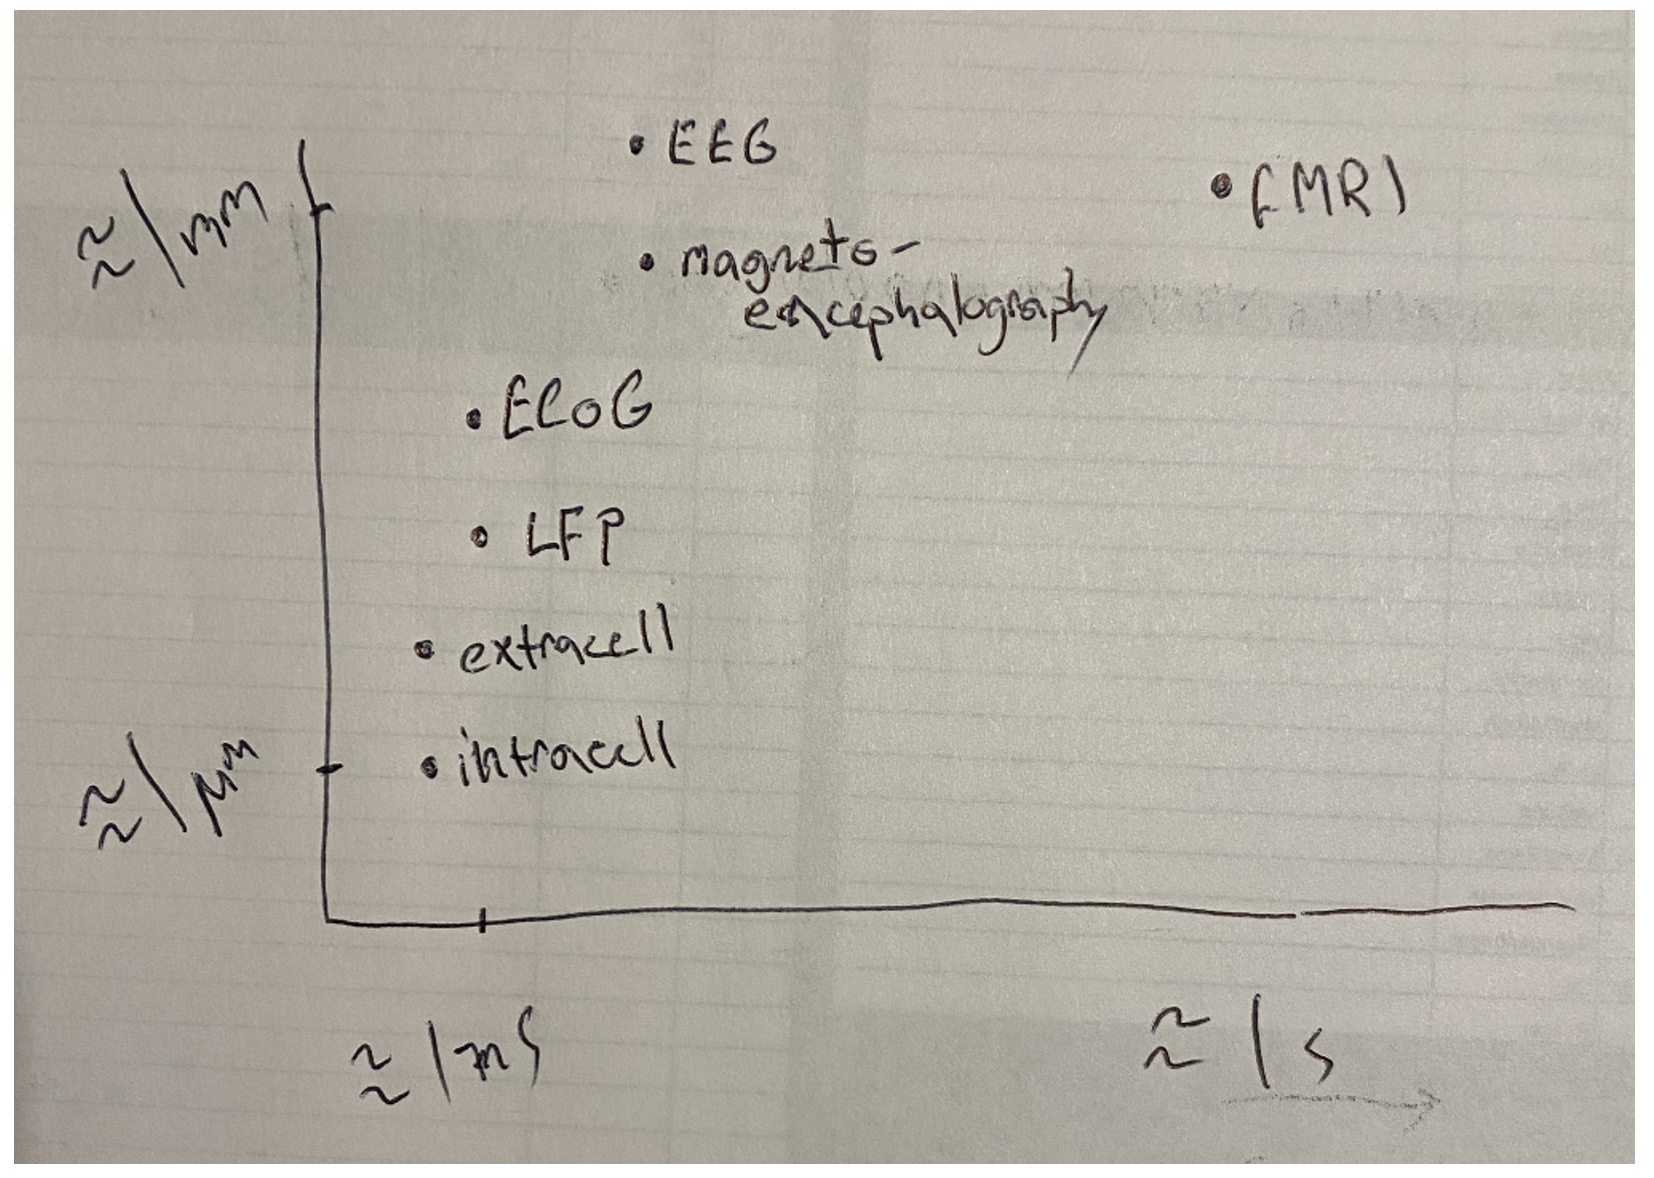 • EEG
• fMRI
≈/mm
• magneto-
encephalography
• ECoG
• LFP
• extracell
• intracell
≈/μm
≈/ms
≈/s